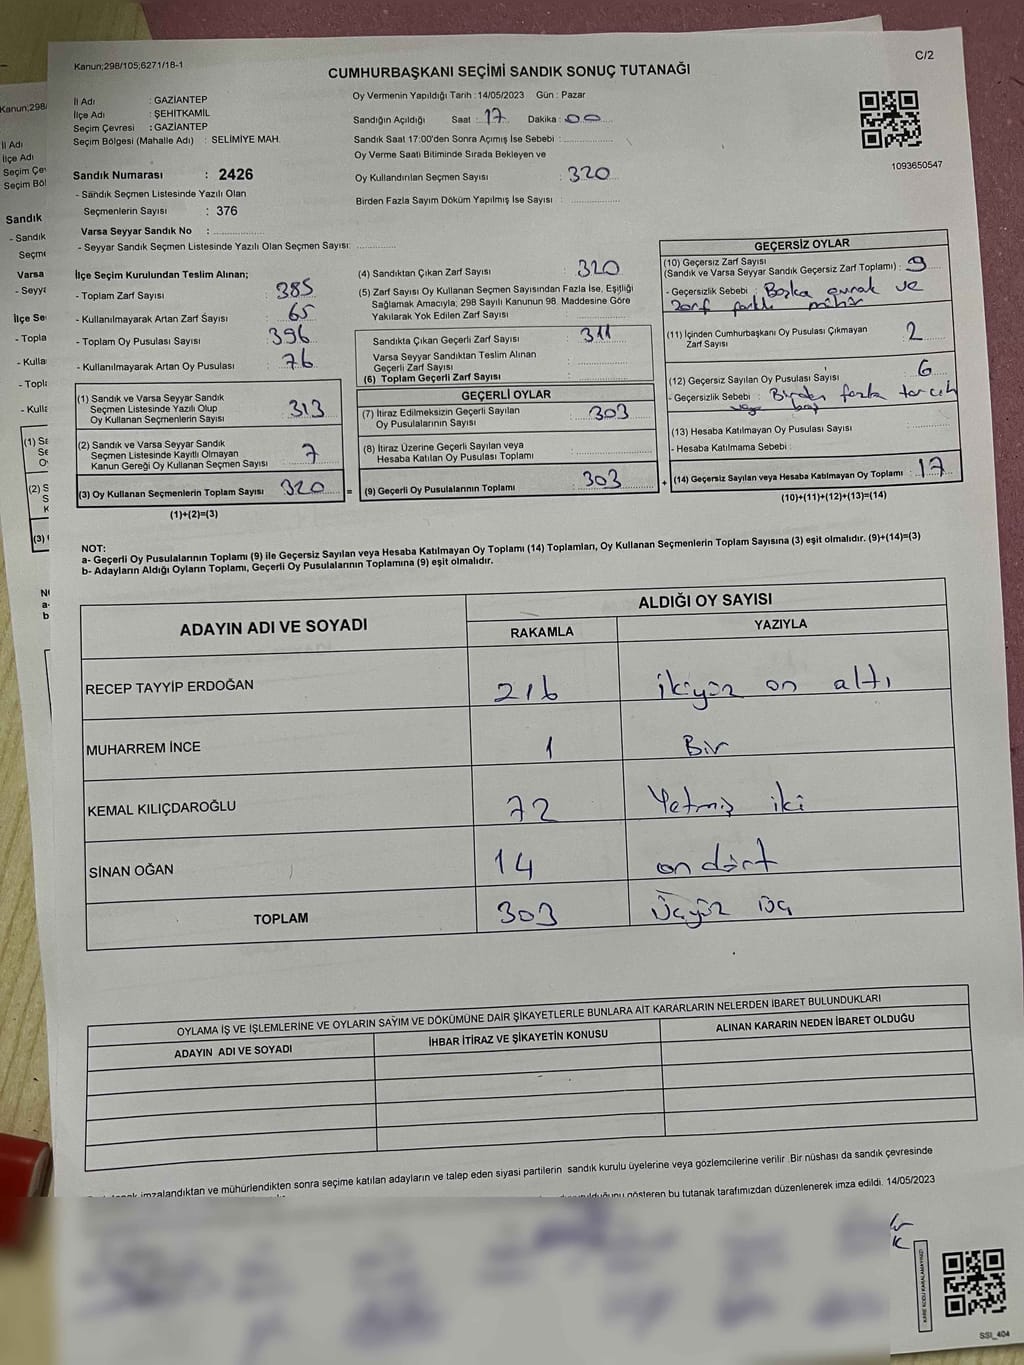 Kanun;298/105;6271/18-1
C/2
CUMHURBAŞKANI SEÇİMİ SANDIK SONUÇ TUTANAĞI
İl Adı : GAZİANTEP
İlçe Adı : ŞEHİTKAMİL
Seçim Çevresi : GAZİANTEP
Seçim Bölgesi (Mahalle Adı) : SELİMİYE MAH.
Sandık Numarası : 2426
- Sandık Seçmen Listesinde Yazılı Olan
Seçmenlerin Sayısı : 376
Varsa Seyyar Sandık No :
- Seyyar Sandık Seçmen Listesinde Yazılı Olan Seçmen Sayısı:
Oy Vermenin Yapıldığı Tarih :14/05/2023 Gün : Pazar
Sandığın Açıldığı Saat : 17 Dakika : 00
Sandık Saat 17:00'den Sonra Açımış İse Sebebi :
Oy Verme Saati Bitiminde Sırada Bekleyen ve
Oy Kullandırılan Seçmen Sayısı : 320
Birden Fazla Sayım Döküm Yapılmış İse Sayısı :
1093650547
İlçe Seçim Kurulundan Teslim Alınan;
- Toplam Zarf Sayısı : 385
- Kullanılmayarak Artan Zarf Sayısı : 65
- Toplam Oy Pusulası Sayısı : 396
- Kullanılmayarak Artan Oy Pusulası : 76
(1) Sandık ve Varsa Seyyar Sandık
Seçmen Listesinde Yazılı Olup
Oy Kullanan Seçmenlerin Sayısı : 313
(2) Sandık ve Varsa Seyyar Sandık
Seçmen Listesinde Kayıtlı Olmayan
Kanun Gereği Oy Kullanan Seçmen Sayısı : 7
(3) Oy Kullanan Seçmenlerin Toplam Sayısı : 320
(1)+(2)=(3)
(4) Sandıktan Çıkan Zarf Sayısı : 320
(5) Zarf Sayısı Oy Kullanan Seçmen Sayısından Fazla İse, Eşitliği
Sağlamak Amacıyla; 298 Sayılı Kanunun 98. Maddesine Göre
Yakılarak Yok Edilen Zarf Sayısı :
Sandıkta Çıkan Geçerli Zarf Sayısı : 311
Varsa Seyyar Sandıktan Teslim Alınan
Geçerli Zarf Sayısı :
(6) Toplam Geçerli Zarf Sayısı :
GEÇERLİ OYLAR
(7) İtiraz Edilmeksizin Geçerli Sayılan
Oy Pusulalarının Sayısı : 303
(8) İtiraz Üzerine Geçerli Sayılan veya
Hesaba Katılan Oy Pusulası Toplamı :
= (9) Geçerli Oy Pusulalarının Toplamı : 303
GEÇERSİZ OYLAR
(10) Geçersiz Zarf Sayısı
(Sandık ve Varsa Seyyar Sandık Geçersiz Zarf Toplamı) : 9
- Geçersizlik Sebebi : Başka evrak ve
zarf farklı mühür
(11) İçinden Cumhurbaşkanı Oy Pusulası Çıkmayan
Zarf Sayısı : 2
(12) Geçersiz Sayılan Oy Pusulası Sayısı : 6
- Geçersizlik Sebebi : Birden fazla tercih
veya boş
(13) Hesaba Katılmayan Oy Pusulası Sayısı :
- Hesaba Katılmama Sebebi :
+ (14) Geçersiz Sayılan veya Hesaba Katılmayan Oy Toplamı : 17
(10)+(11)+(12)+(13)=(14)
NOT:
a- Geçerli Oy Pusulalarının Toplamı (9) ile Geçersiz Sayılan veya Hesaba Katılmayan Oy Toplamı (14) Toplamları, Oy Kullanan Seçmenlerin Toplam Sayısına (3) eşit olmalıdır. (9)+(14)=(3)
b- Adayların Aldığı Oyların Toplamı, Geçerli Oy Pusulalarının Toplamına (9) eşit olmalıdır.
ADAYIN ADI VE SOYADI
ALDIĞI OY SAYISI
RAKAMLA YAZIYLA
RECEP TAYYİP ERDOĞAN 216 ikiyüz on altı
MUHARREM İNCE 1 Bir
KEMAL KILIÇDAROĞLU 72 Yetmiş iki
SİNAN OĞAN 14 on dört
TOPLAM 303 üçyüz üç
OYLAMA İŞ VE İŞLEMLERİNE VE OYLARIN SAYIM VE DÖKÜMÜNE DAİR ŞİKAYETLERLE BUNLARA AİT KARARLARIN NELERDEN İBARET BULUNDUKLARI
ADAYIN ADI VE SOYADI İHBAR İTİRAZ VE ŞİKAYETİN KONUSU ALINAN KARARIN NEDEN İBARET OLDUĞU
imzalandıktan ve mühürlendikten sonra seçime katılan adayların ve talep eden siyasi partilerin sandık kurulu üyelerine veya gözlemcilerine verilir. Bir nüshası da sandık çevresinde
gösteren bu tutanak tarafımızdan düzenlenerek imza edildi. 14/05/2023
KARE KODU KARALAMAYINIZ!
SSI_404
Kanun;298/
İl Adı
İlçe Adı
Seçim Çev
Seçim Böl
Sandık
- Sandık
Seçme
Varsa
- Seyya
İlçe Se
- Topla
- Kulla
- Topla
- Kulla
(1) Sa
Se
O
(2) S
S
K
(3)
N
a-
b